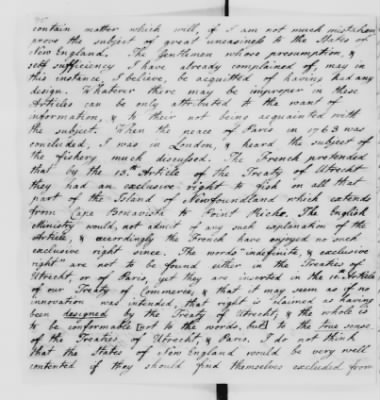 contain matter which will, if I am not much mistaken
prove the subject of great uneasiness to the States of
New England. The Gentlemen whose presumption, &
self sufficiency I have already complained of, may in
this instance, I believe, be acquitted of having had any
design. Whatever there may be improper in these
Articles can be only attributed to the want of
information, & to their not being acquainted with
the subject. When the peace of Paris in 1763 was
concluded, I was in London, & heard the subject of
the fishery much discussed. The French pretended
that by the 13th Article of the Treaty of Utrecht
they had an exclusive right to fish on all that
part of the Island of Newfoundland which extends
from Cape Bonavista to Point Riche. The English
Ministry would not admit of any such explanation of the
Article, & accordingly the French have enjoyed no such
exclusive right since. The words "indefinite, & exclusive
right" are not to be found either in the Treaties of
Utrecht, or of Paris, yet they are inserted in the 10th Article
of our Treaty of Commerce, & that it may seem as if no
innovation was intended, that right is claimed as having
been designed by the Treaty of Utrecht, & the whole is
to be conformable [not to the words, but] to the true sense
of the Treaties of Utrecht, & Paris. I do not think
that the States of New England would be very well
contented if they should find themselves excluded from